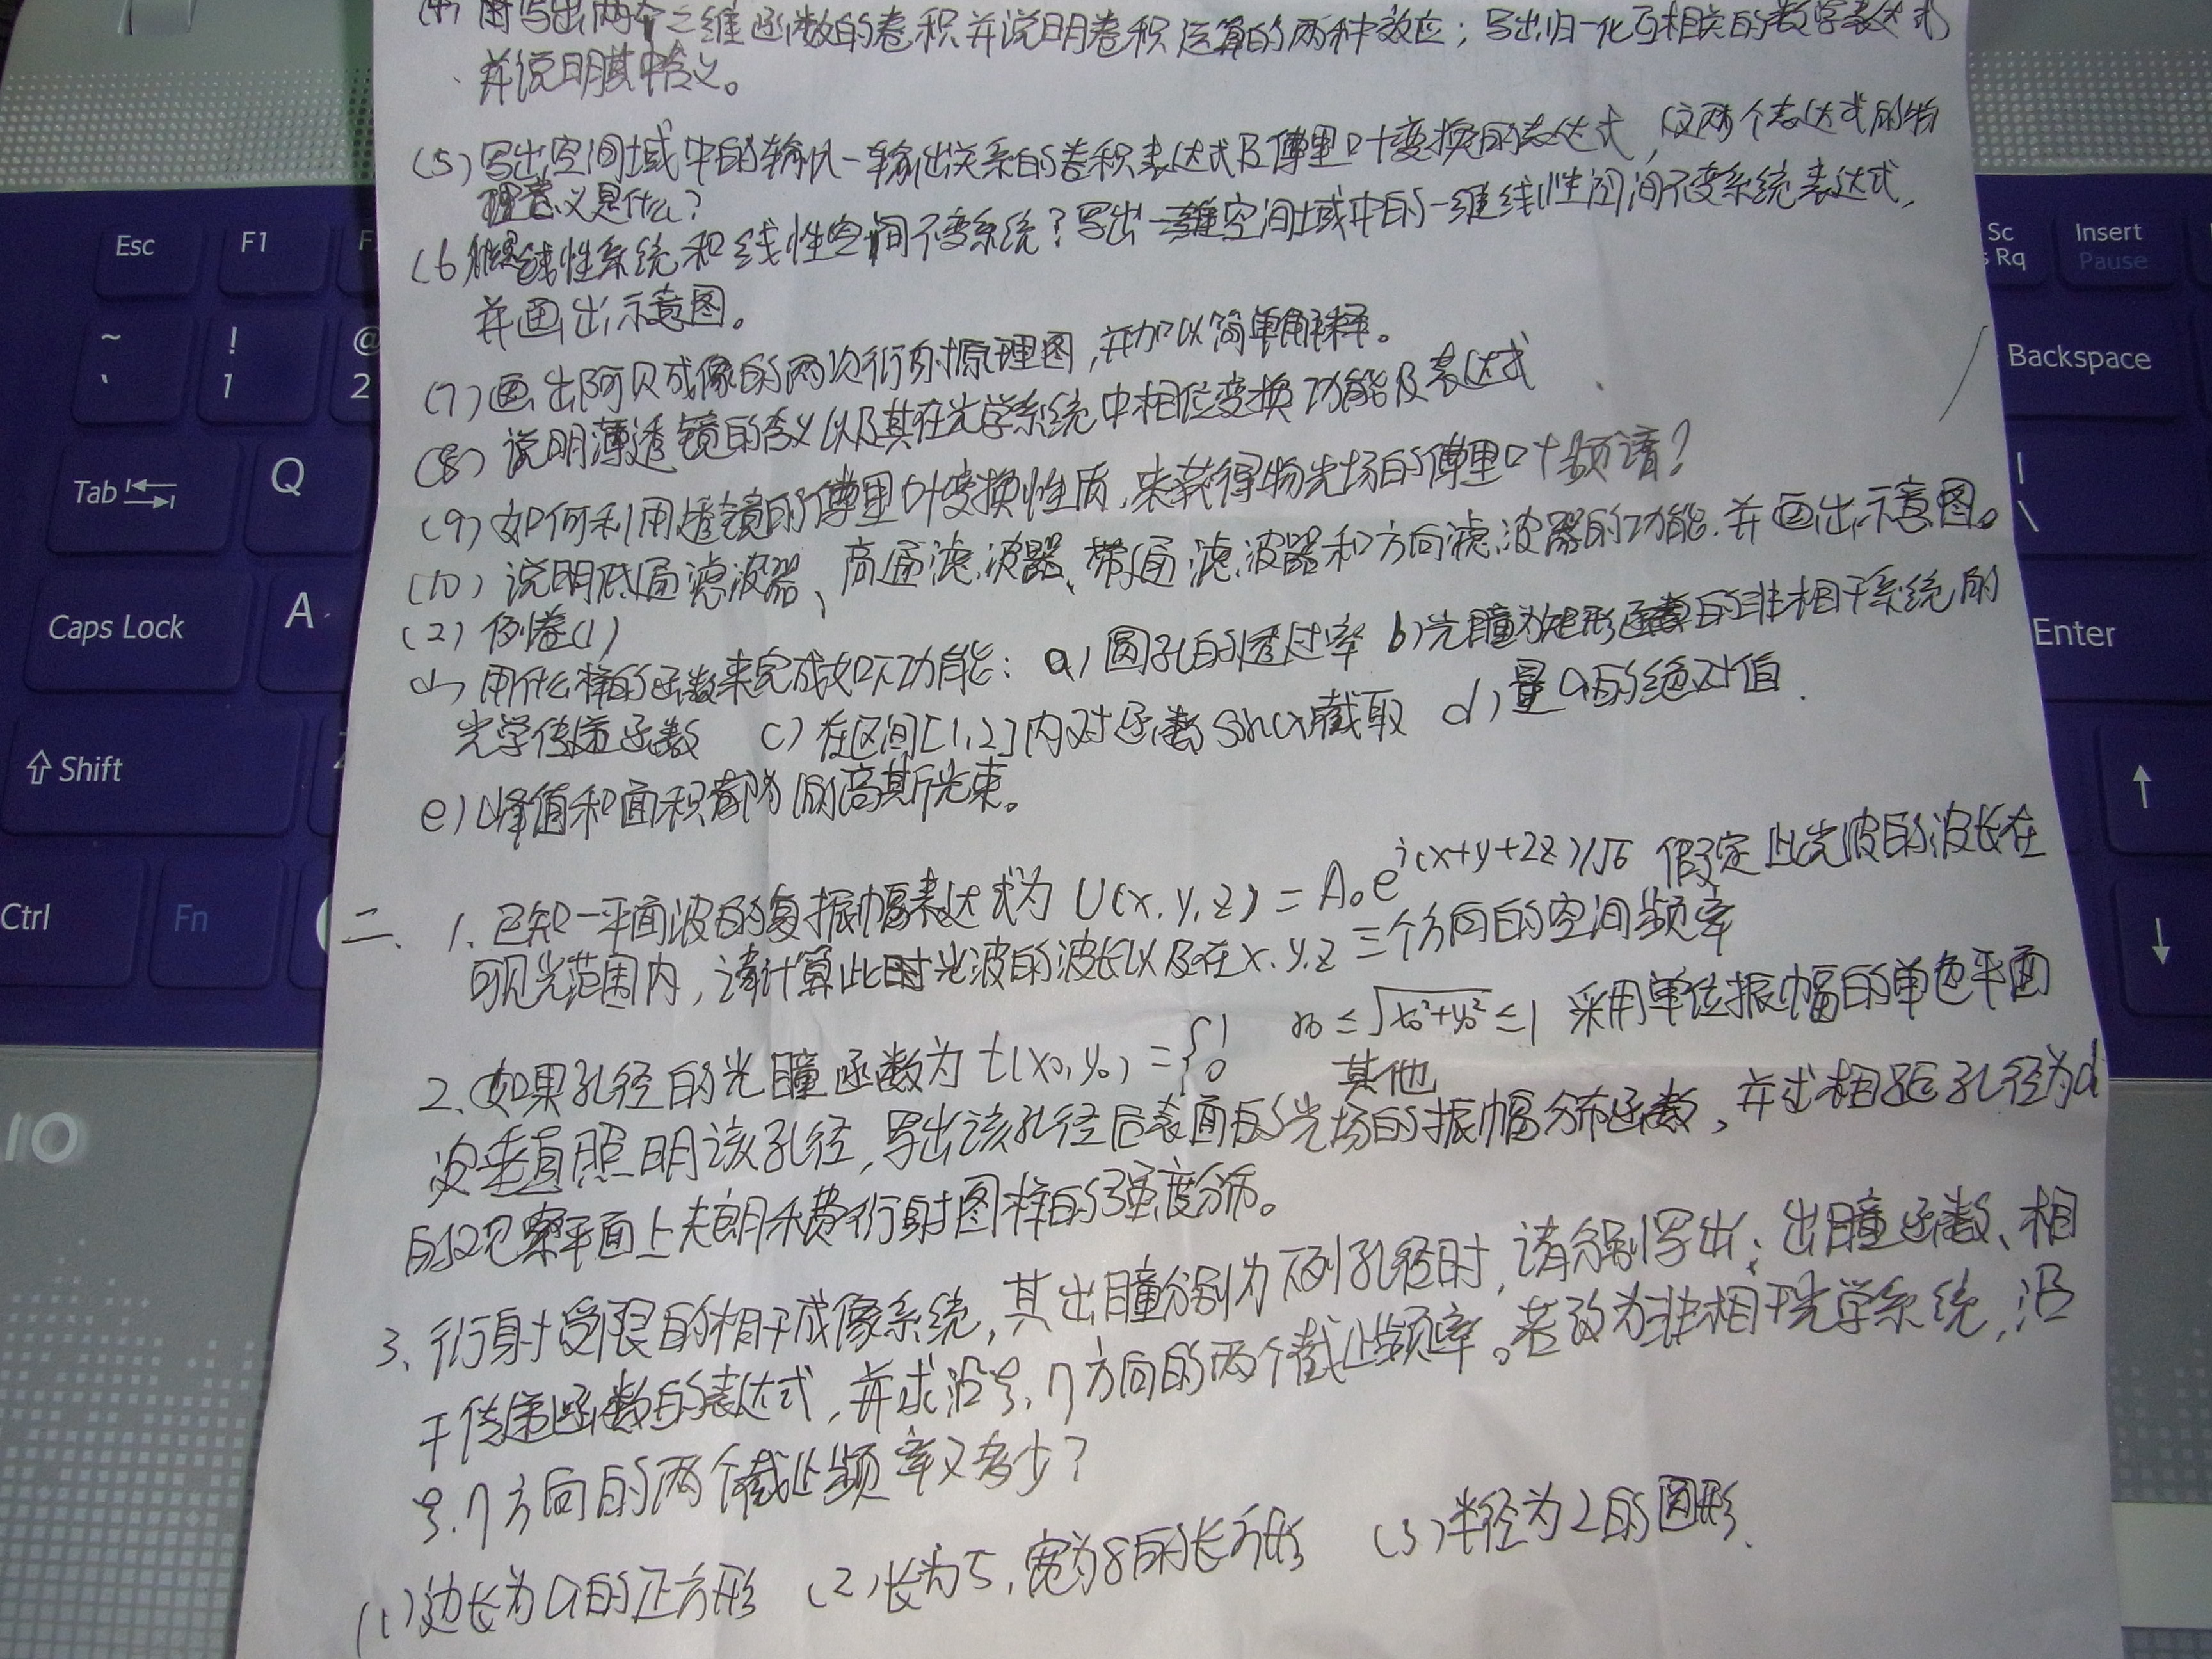 (4) 用写出两个二维函数的卷积并说明卷积运算的两种效应；写出归一化互相关的数学表达式
并说明其中含义。
(5) 写出空间域中的输入-输出关系的卷积表达式及傅里叶变换的表达式，这两个表达式的物
理意义是什么？
(6) 线性系统和线性空间不变系统？写出一维空间域中的一维线性空间不变系统表达式，
并画出示意图。
(7) 画出阿贝成像的两次衍射原理图，并加以简单解释。
(8) 说明薄透镜的含义以及其在光学系统中相位变换功能及表达式
(9) 如何利用透镜的傅里叶变换性质，来获得物光场的傅里叶频谱？
(10) 说明低通滤波器、高通滤波器、带通滤波器和方向滤波器的功能.并画出示意图。
(2) 例卷(1)
用什么样的函数来完成如下功能： a) 圆孔的透过率 b) 光瞳为矩形函数的非相干系统的
光学传递函数 c) 在区间[1,2]内对函数sincx截取 d) 量a的绝对值.
e) 峰值和面积都为1的高斯光束。
二、 1. 已知一平面波的复振幅表达式为 U(x,y,z) = A₀e^{i(x+y+2z)/√6} 假定此光波的波长在
可见光范围内，请计算此时光波的波长以及在x.y.z三个方向的空间频率
2. 如果孔径的光瞳函数为 t(x₀,y₀) = {1 ≤ √x₀²+y₀² ≤ 1 采用单位振幅的单色平面
0 其他
波垂直照明该孔径，写出该孔径后表面的光场的振幅分布函数，并求相距孔径为d
的观察平面上夫朗禾费衍射图样的强度分布。
3、衍射受限的相干成像系统，其出瞳分别为下列孔径时，请分别写出：出瞳函数、相
干传递函数的表达式，并求沿ξ、η方向的两个截止频率。若改为非相干光学系统，沿
ξ、η方向的两个截止频率又多少？
(1) 边长为a的正方形 (2) 长为5，宽为8的长方形 (3) 半径为2的圆形.
Esc
F1
F
~
`
!
1
@
2
Tab
Q
Caps Lock
A
Shift
Ctrl
Fn
Sc
Rq
Insert
Pause
Backspace
|
\
Enter
IO